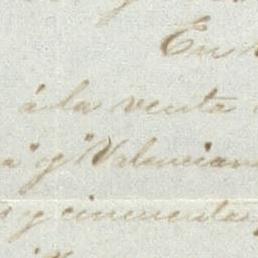 En
á la venta
a" y "Valencian
y cincuenta